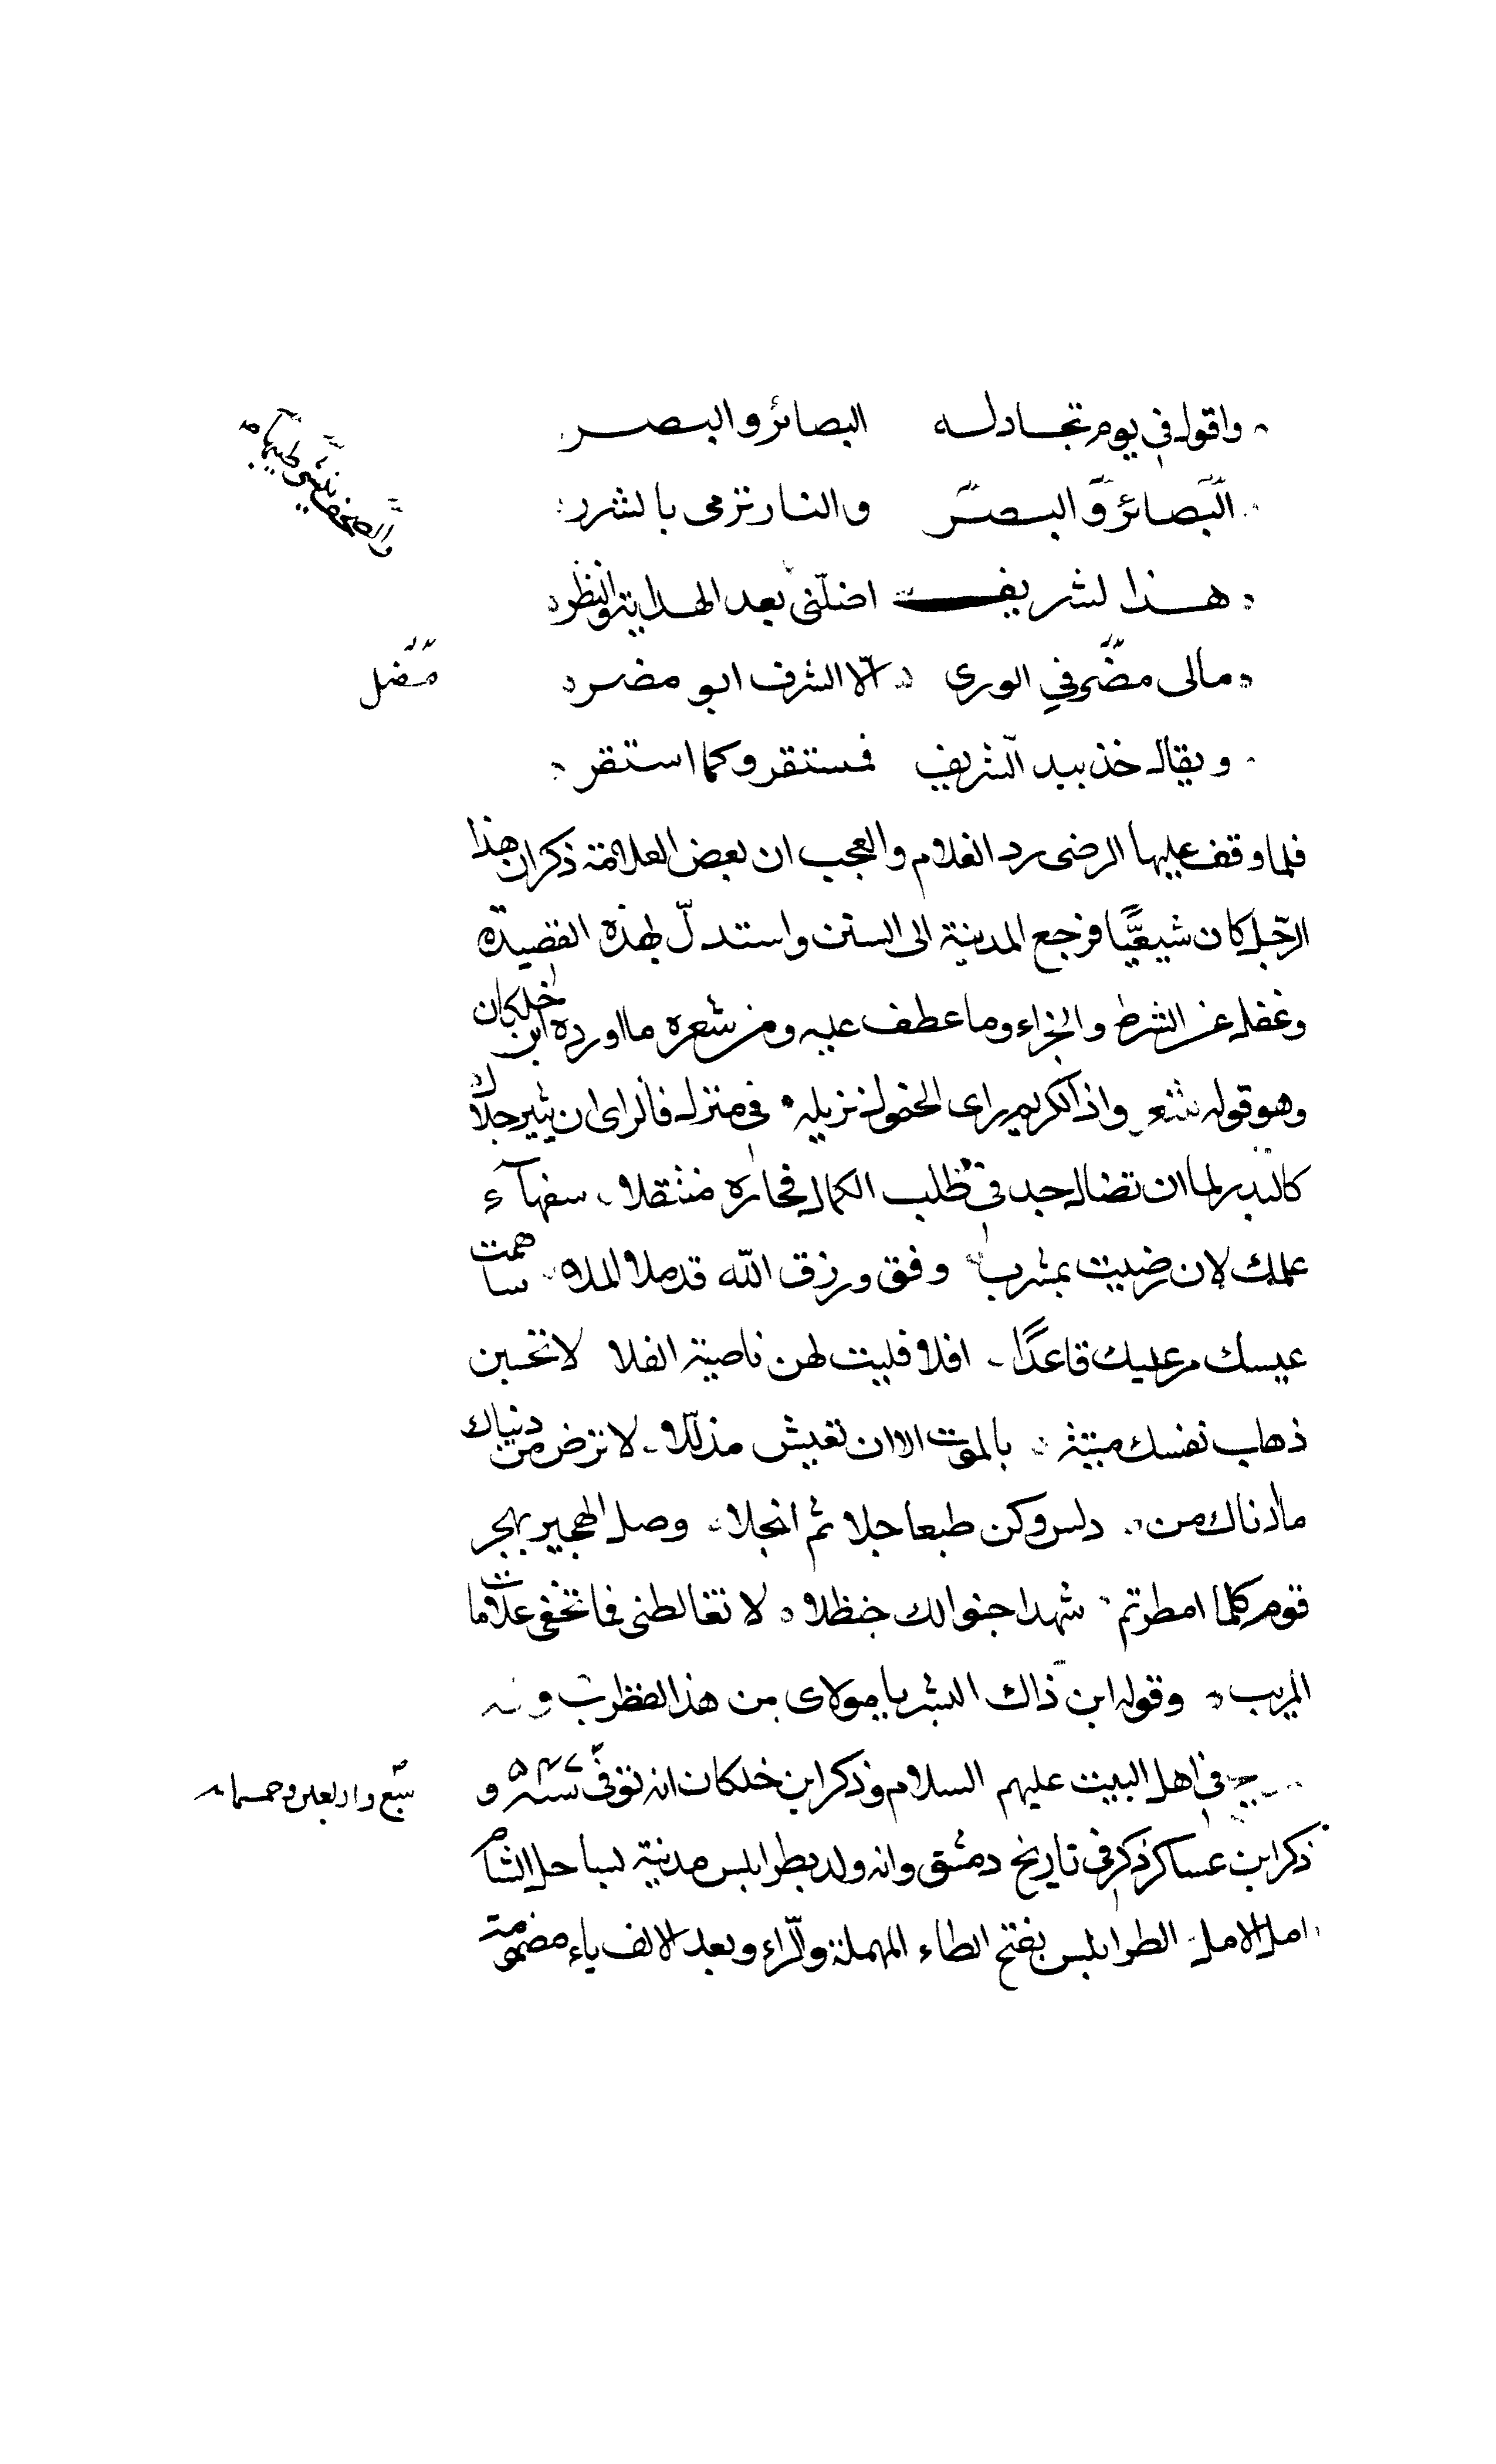 واقول في يوم تحادله البصائر والبصر
البصائر والبصر والنار ترمي بالشرر
والصحف ينشر طيها
هذا الشريف اضلّني بعد الهداية والنظر
مالى مضل في الورى الّا الشرف ابو مضر
مضل
ويقال خذ بيد الشريف فمستقر وكما استقر
فلما وقف عليها الرضى رد الغلام والعجب ان بعض العلامة ذكر ان هذا
الرّجل كان شيعيًّا فرجع المدينة الى السنن واستدلّ بهذه القصيدة
وغفل عن الشرط والجزاء وما عطف عليه ومن شعره ما اورده ابن خلكان
وهو قوله شعر واذا الكريم راى الخمول نزيله في منزل فالراى ان
كالبدر لما ان تضال جد في طلب الكمال فحازه منتقلا سفها
عملك لان رضيت بمشرب وفق ورزق الله قد ملا الملا ساهمت
عيسك مر عيك قاعدًا افلا فليت لهن ناصية الفلا لا تحسبن
ذهاب نفسك ميتة بالموت الا ان تعيش مذلّلا لا ترض من دنياك
ما ادناك من دلس وكن طبعا جلا ثم انجلا وصل الهجير بهجر
قوم كلما امطرتم شهدا جنوا لك حنظلا لا تغالطني فما تخفى علامات
المريب وقوله ابن ذاك البشر يا مولاى من هذا
في اهل البيت عليهم السلام وذكر ابن خلكان انه توفّي سنة ۵۴۷ و
سبع واربعين وخمسمائة
ذكر ابن عساكر ذكر في تاريخ دمشق وانه ولد بطرابلس مدينة بساحل الشام
امل الامل الطرابلس بفتح الطاء المهملة والرّاء وبعد الالف باء مضمومة